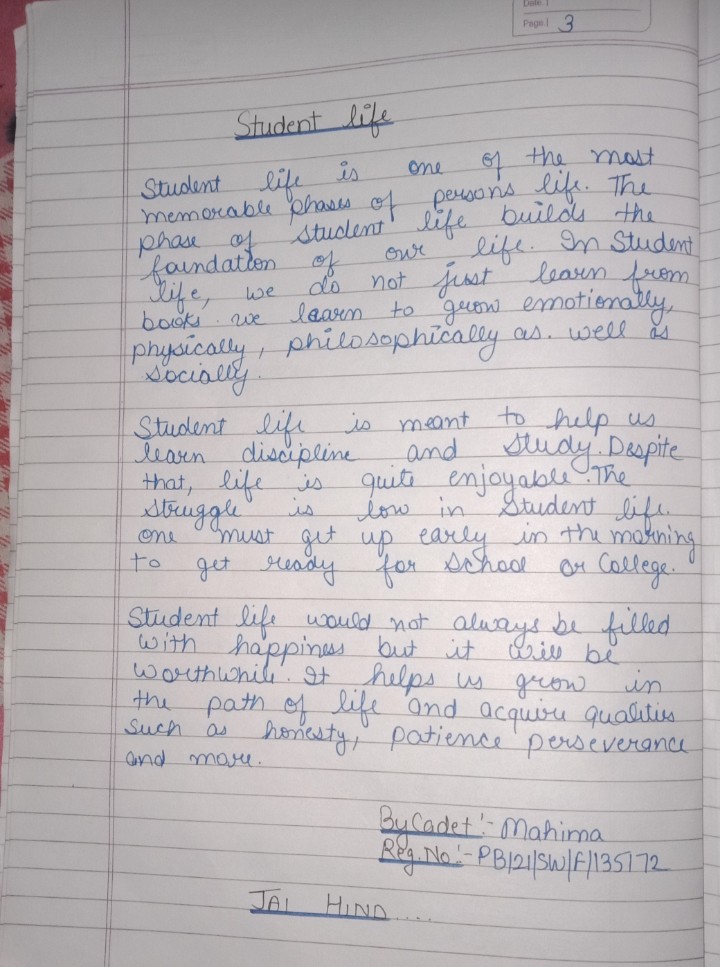 Date.|
Page.| 3
Student life
Student life is one of the most
memorable phases of persons life. The
phase of student life builds the
foundation of our life. In Student
life, we do not just learn from
books. we learn to grow emotionally,
physically, philosophically as. well as
socially.
Student life is meant to help us
learn discipline and study. Despite
that, life is quite enjoyable. The
struggle is low in student life.
one must get up early in the morning
to get ready for school or College.
Student life would not always be filled
with happiness but it will be
worthwhile. It helps us grow in
the path of life and acquire qualities
such as honesty, patience perseverance
and more.
By Cadet :- Mahima
Reg. No :- PB/21/SW/F/135172
JAI HIND....